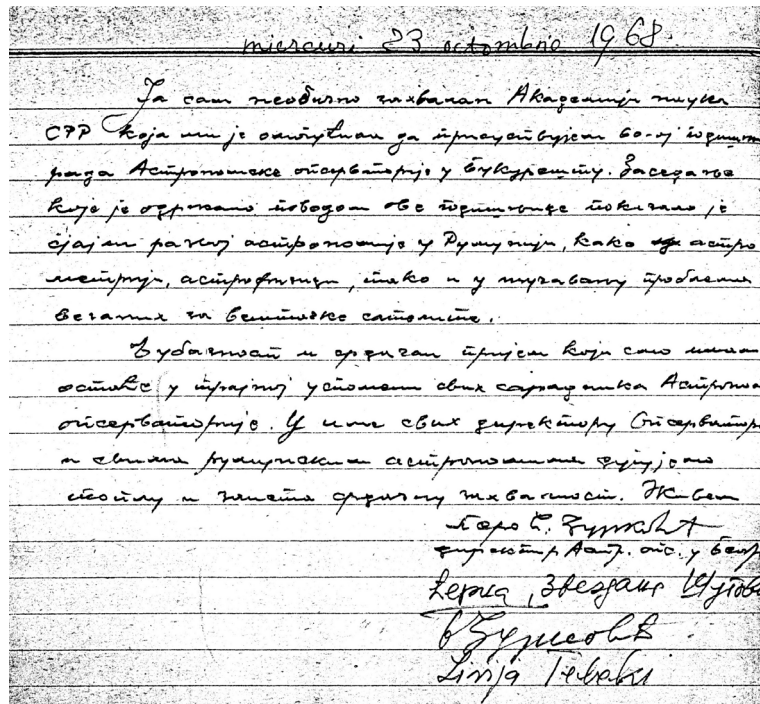 miercuri 23 octombrie 1968.
Ја сам необично захвалан Академији наука
СРР која ми је омогућила да присуствујем 60-ој годишњ
рада Астрономске опсерваторије у Букурешту. Заседање
које је одржано поводом ове годишњице показало је
сјајни развој астрономије у Румунији, како у астро
метрији, астрофизици, тако и у изучавању проблема
везаних за вештачке сателите.
Љубазност и срдачан пријем који смо имали
остаће у трајној успомени свих сарадника Астроном
опсерваторије. У име свих директору Опсерватор
и свима румунским астрономима дугујемо
топлу и заиста срдачну захвалност. Живели
Перо Ђурковић
директор Астр. опс. у Беогр
Звездана